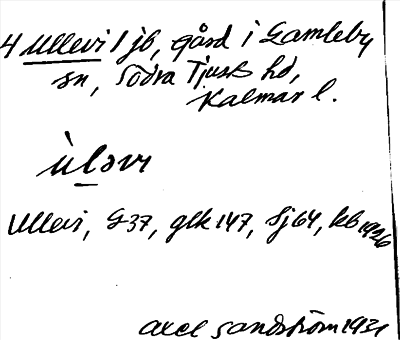 4 Ullevi 1 jb, gård i Gamleby
sn, Södra Tjusts hd,
Kalmar l.
ùləvi
Ullevi, G 37, glk 147, Sj 64, kb 1926
Axel Sandström 1931